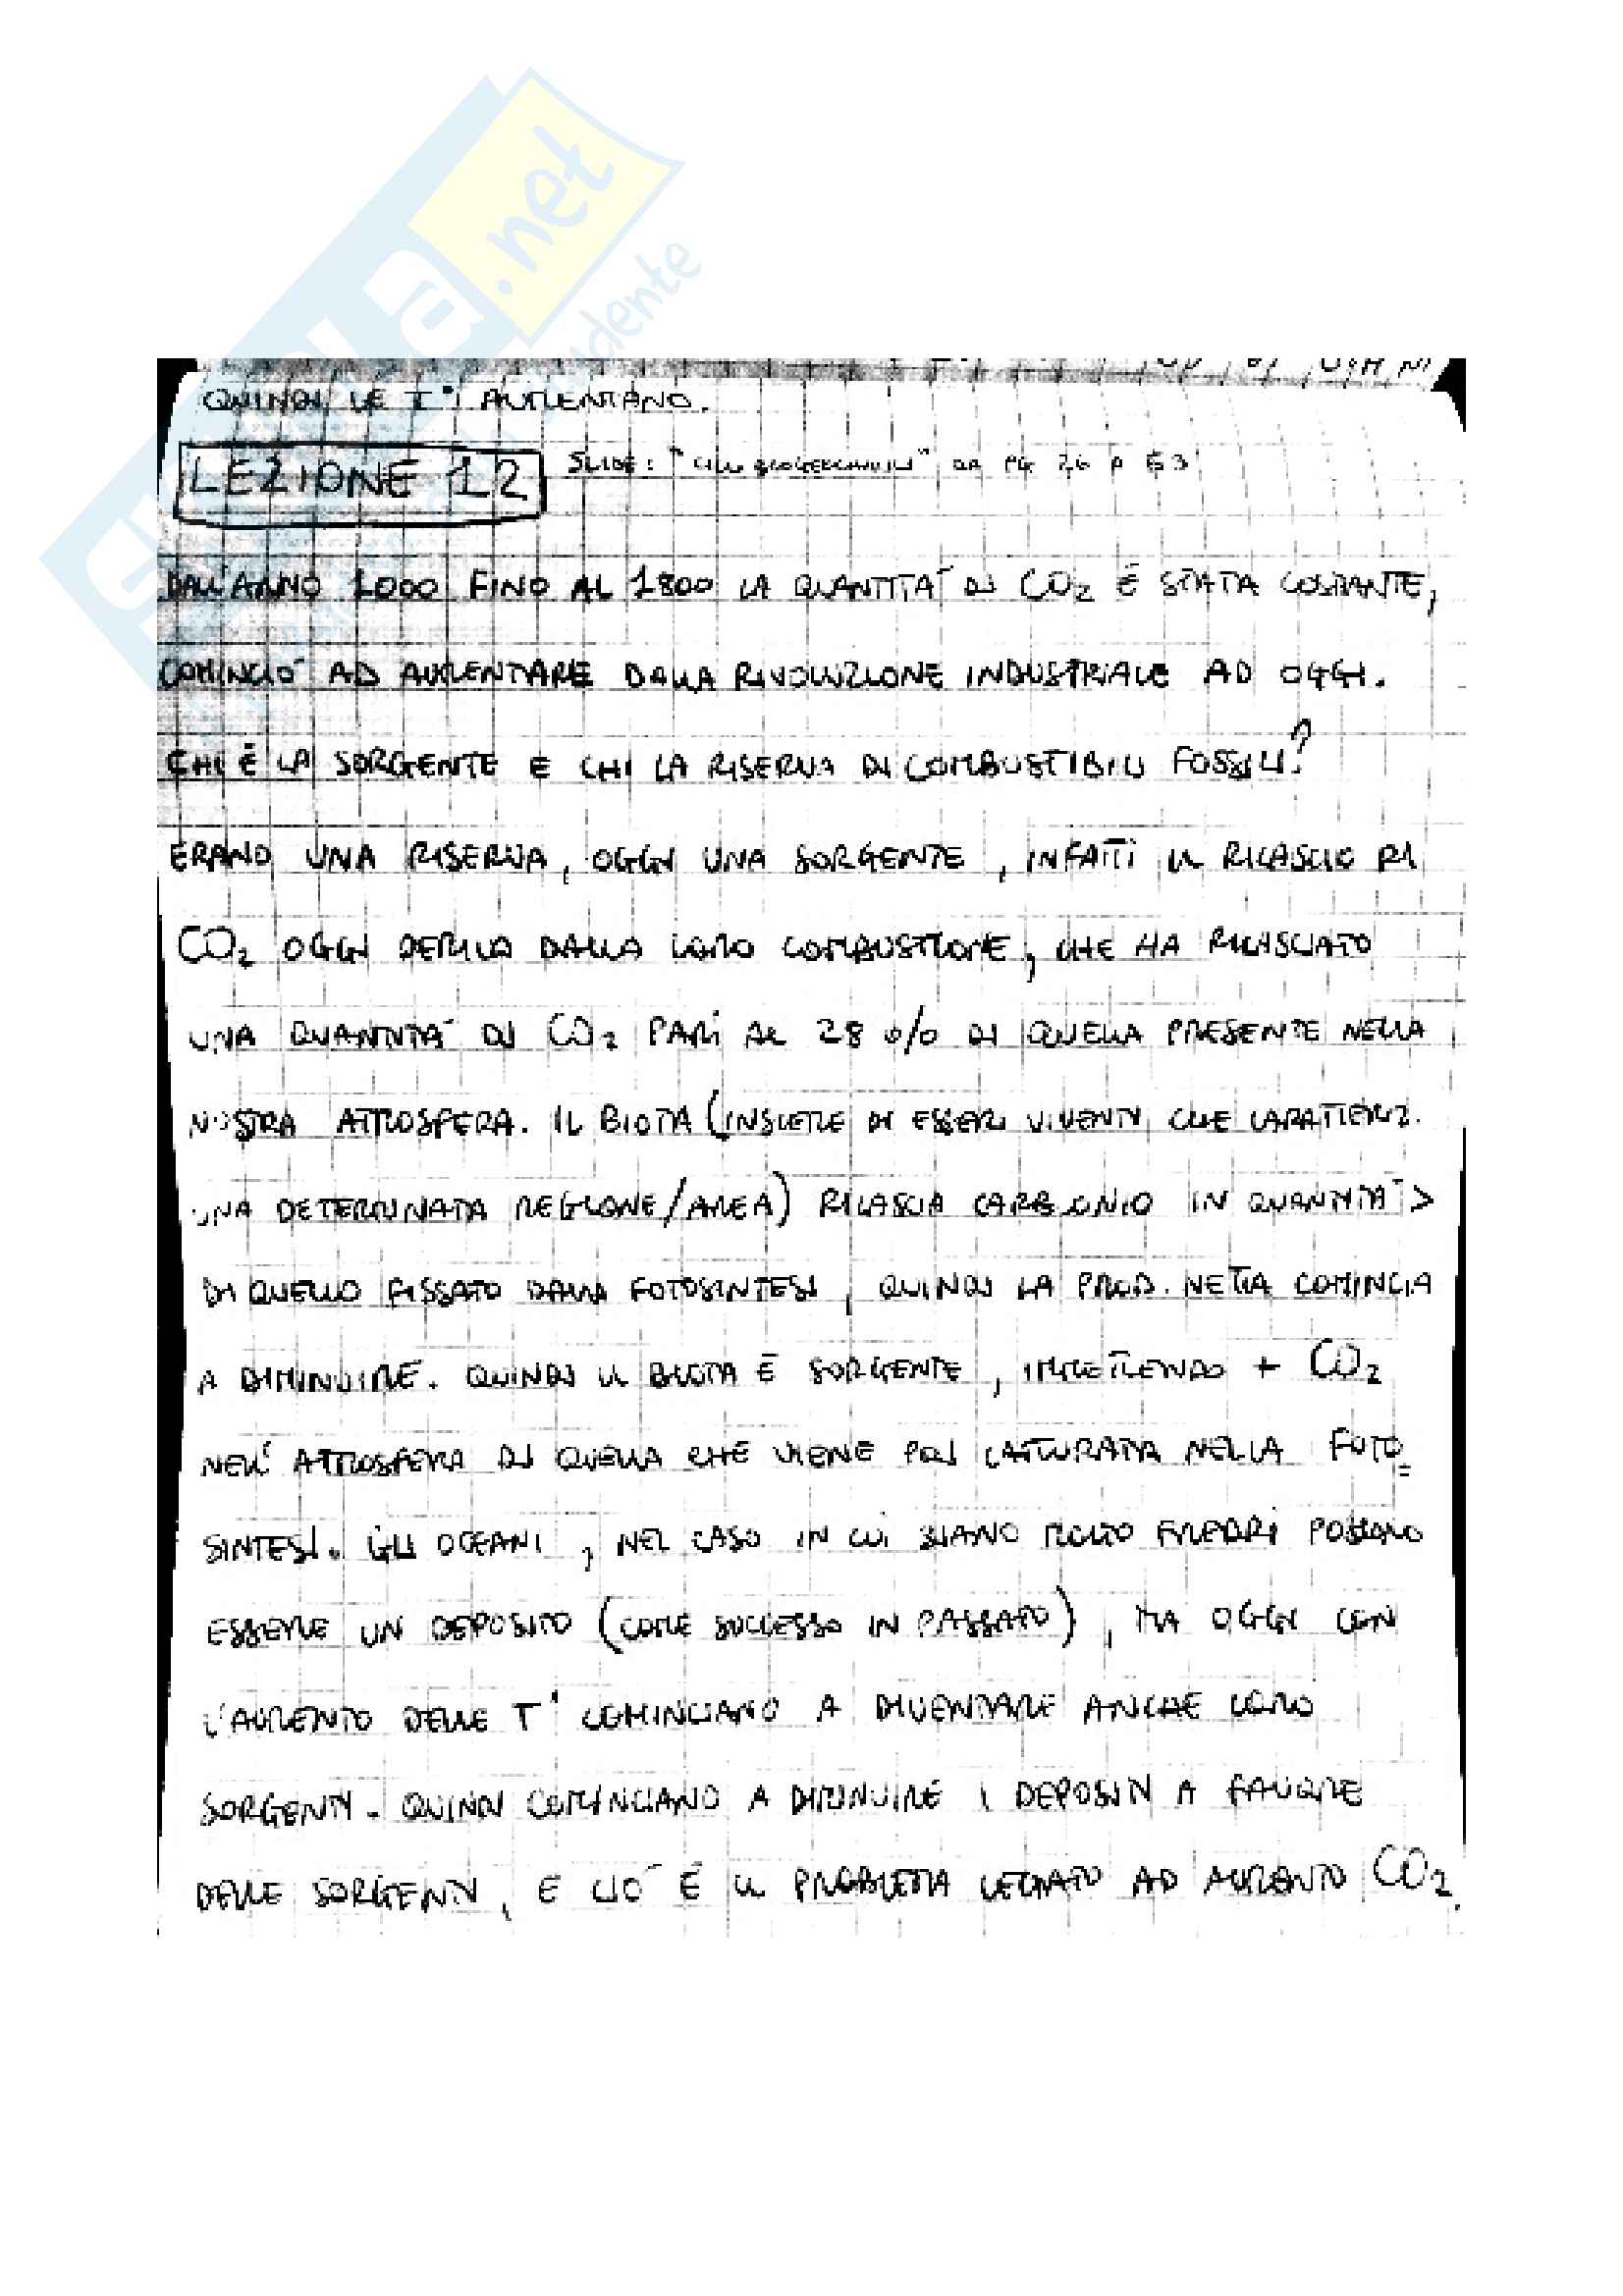 .net
QUINDI LE T° AUMENTANO.
LEZIONE 12 SLIDE: "CICLI BIOGEOCHIMICI" DA PG 26 A 53
DALL'ANNO 1000 FINO AL 1800 LA QUANTITA' DI CO2 È STATA COSTANTE,
COMINCIO' AD AUMENTARE DALLA RIVOLUZIONE INDUSTRIALE AD OGGI.
CHI È LA SORGENTE E CHI LA RISERVA DI COMBUSTIBILI FOSSILI?
ERANO UNA RISERVA, OGGI UNA SORGENTE, INFATTI IL RILASCIO DI
CO2 OGGI DERIVA DALLA LORO COMBUSTIONE, CHE HA RILASCIATO
UNA QUANTITA' DI CO2 PARI AL 28 % DI QUELLA PRESENTE NELLA
NOSTRA ATMOSFERA. IL BIOTA (INSIEME DI ESSERI VIVENTI CHE CARATTERIZ.
UNA DETERMINATA REGIONE/AREA) RILASCIA CARBONIO IN QUANTITA' >
DI QUELLO FISSATO DALLA FOTOSINTESI, QUINDI LA PROD. NETTA COMINCIA
A DIMINUIRE. QUINDI IL BIOTA È SORGENTE, IMMETTENDO + CO2
NELL'ATMOSFERA DI QUELLA CHE VIENE POI CATTURATA NELLA FOTO=
SINTESI. GLI OCEANI, NEL CASO IN CUI SIANO MOLTO FREDDI POSSONO
ESSERE UN DEPOSITO (COME SUCCESSO IN PASSATO), MA OGGI CON
L'AUMENTO DELLE T° COMINCIANO A DIVENTARE ANCHE LORO
SORGENTI. QUINDI COMINCIANO A DIMINUIRE I DEPOSITI A FAVORE
DELLE SORGENTI, E CIO' È IL PROBLEMA LEGATO AD AUMENTO CO2.